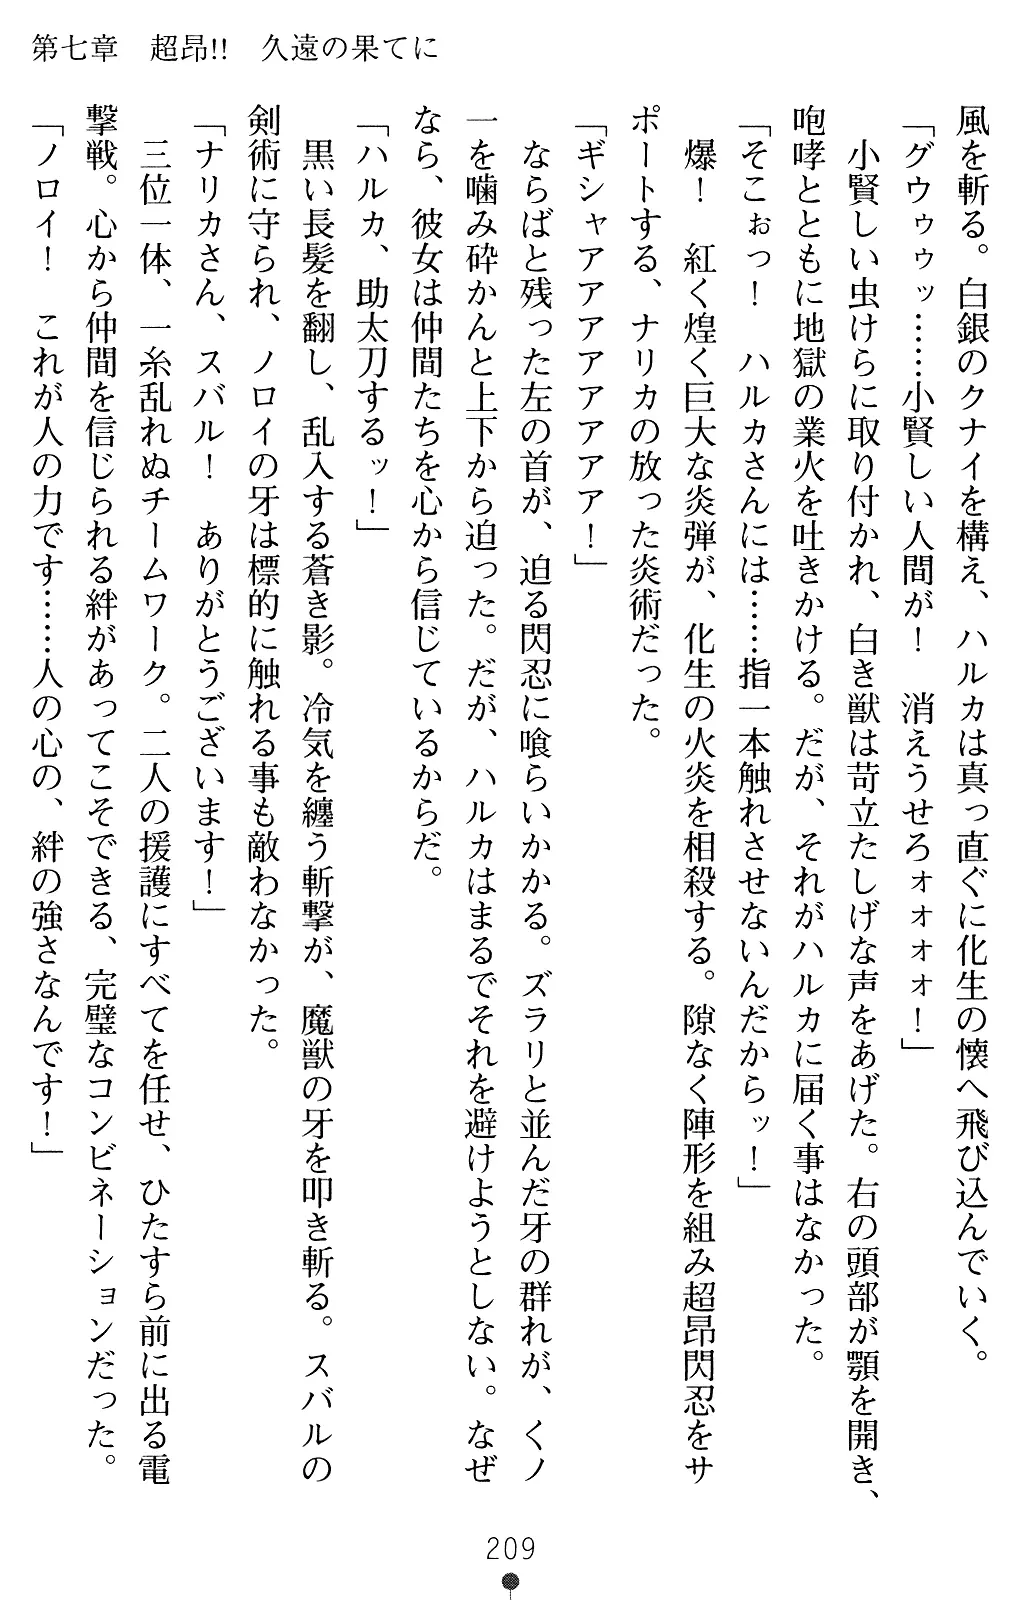 第七章　超昂!!　久遠の果てに
風を斬る。白銀のクナイを構え、ハルカは真っ直ぐに化生の懐へ飛び込んでいく。
「グウゥゥッ……小賢しい人間が！　消えうせろォォォォ！」
　小賢しい虫けらに取り付かれ、白き獣は苛立たしげな声をあげた。右の頭部が顎を開き、
咆哮とともに地獄の業火を吐きかける。だが、それがハルカに届く事はなかった。
「そこぉっ！　ハルカさんには……指一本触れさせないんだからッ！」
　爆！　紅く煌く巨大な炎弾が、化生の火炎を相殺する。隙なく陣形を組み超昂閃忍をサ
ポートする、ナリカの放った炎術だった。
「ギシャアアアアアアアア！」
　ならばと残った左の首が、迫る閃忍に喰らいかかる。ズラリと並んだ牙の群れが、くノ
一を噛み砕かんと上下から迫った。だが、ハルカはまるでそれを避けようとしない。なぜ
なら、彼女は仲間たちを心から信じているからだ。
「ハルカ、助太刀するッ！」
　黒い長髪を翻し、乱入する蒼き影。冷気を纏う斬撃が、魔獣の牙を叩き斬る。スバルの
剣術に守られ、ノロイの牙は標的に触れる事も敵わなかった。
「ナリカさん、スバル！　ありがとうございます！」
　三位一体、一糸乱れぬチームワーク。二人の援護にすべてを任せ、ひたすら前に出る電
撃戦。心から仲間を信じられる絆があってこそできる、完璧なコンビネーションだった。
「ノロイ！　これが人の力です……人の心の、絆の強さなんです！」
209